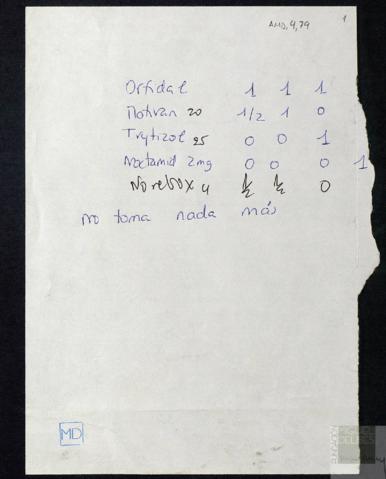 AMD, 4, 79
1
Orfidal 1 1 1
Motivan 20 1/2 1 0
Trytizol 25 0 0 1
Noctamid 2mg 0 0 0 1
Norebox 4 1/2 1/2 0
no toma nada más
MD